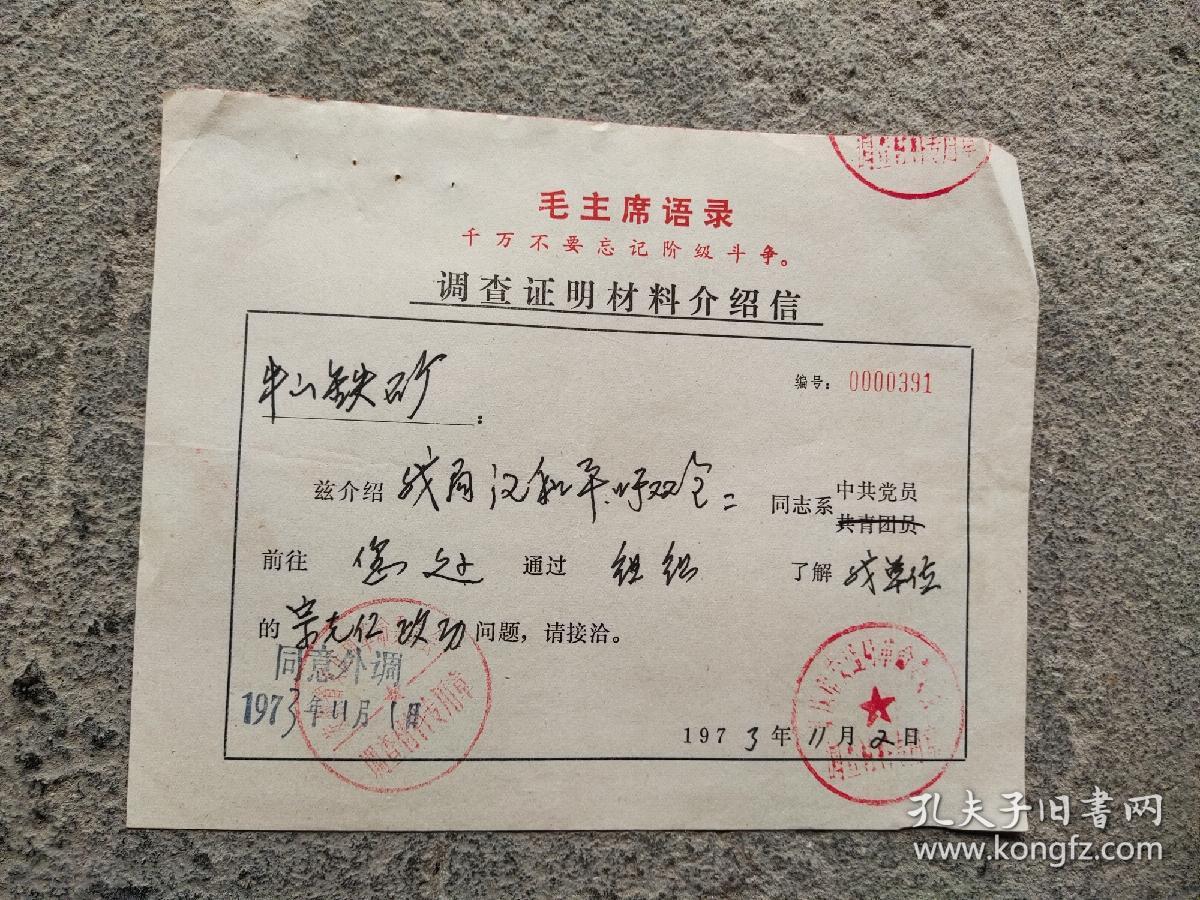 毛主席语录
千万不要忘记阶级斗争。
调查证明材料介绍信
编号：0000391
牛山铁矿：
兹介绍 我局 和平 二 同志系 中共党员
共青团员
前往 您处 通过 组织 了解 我单位
的 宗克仁 政历 问题，请接洽。
同意外调
1973年11月1日
1973年11月2日
调查材料专用章
孔夫子旧书网
www.kongfz.com